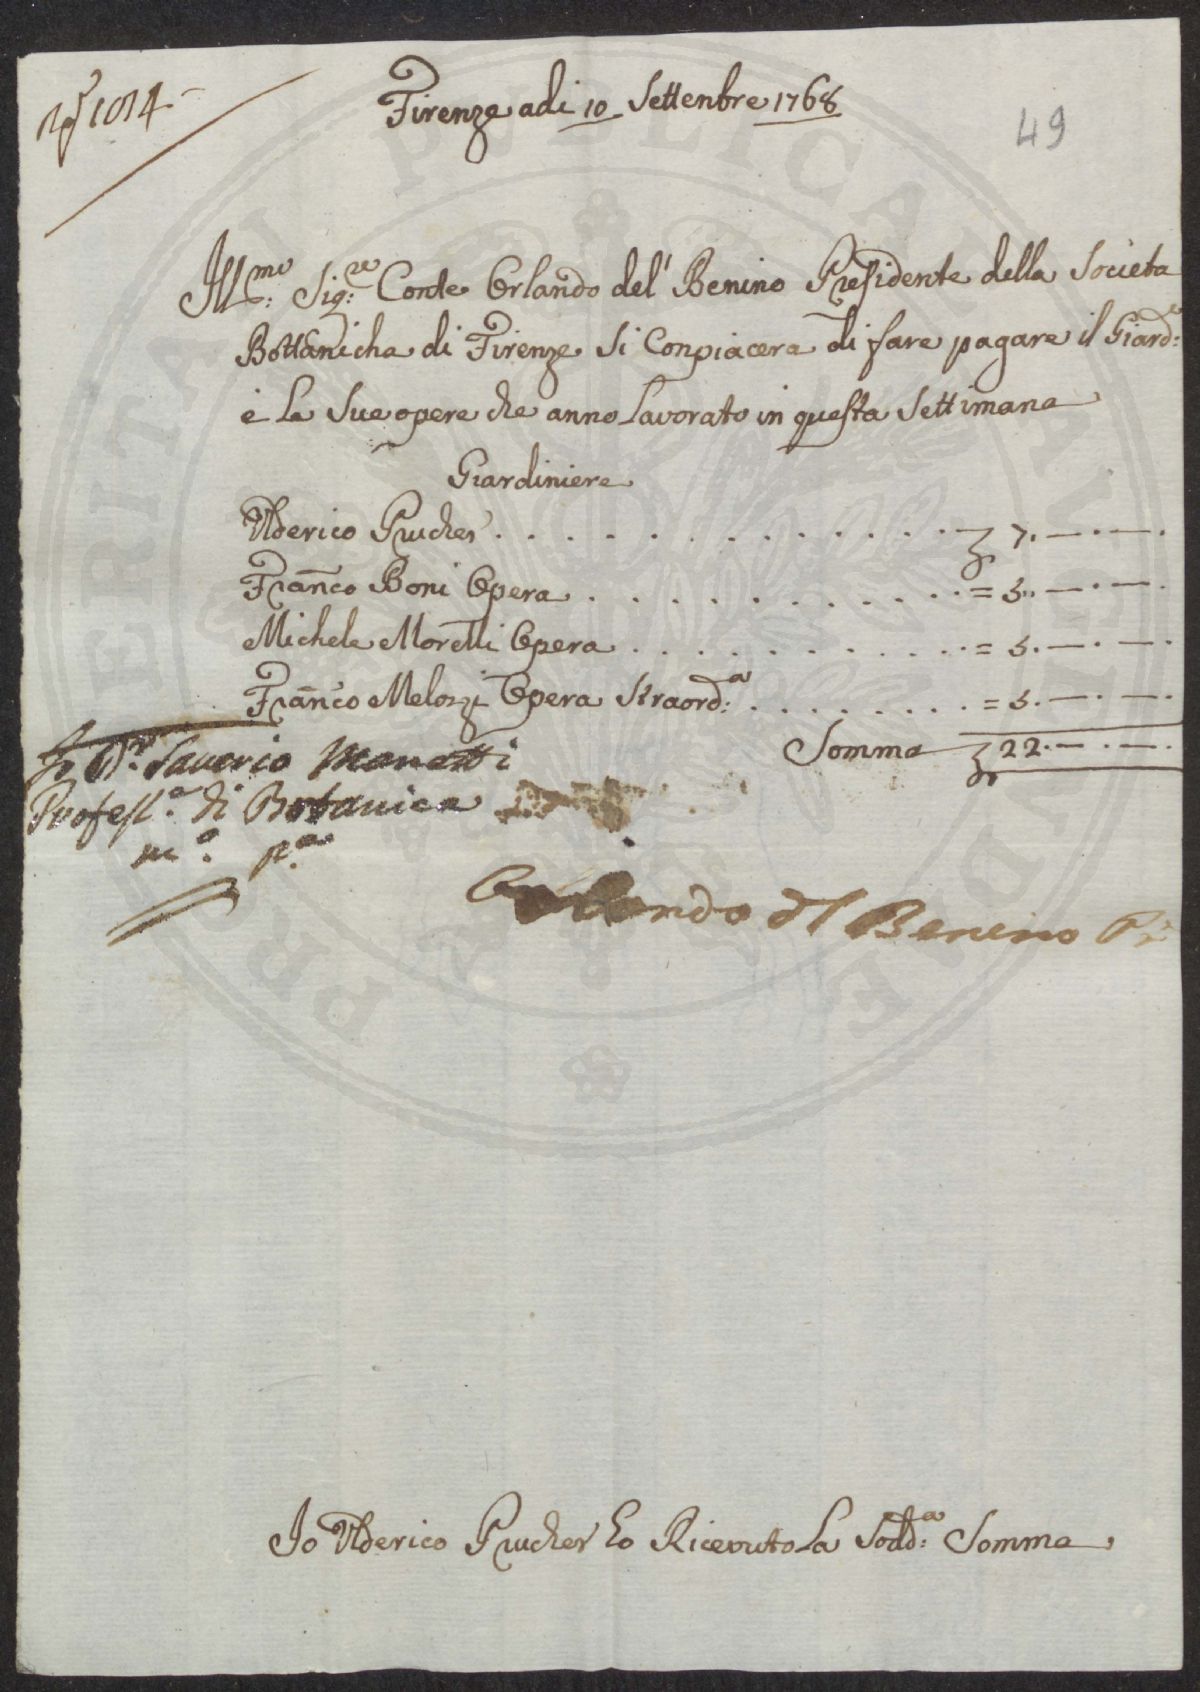 1014
Firenze adi 10 Settenbre 1768
49
Ill.mo Sig.re Conte Orlando del' Benino Presidente della Societa
Bottanicha di Firenze Si Conpiacera di fare pagare il Giard.e
e le Sue opere che anno Lavorato in questa Settimana
Giardiniere
Ulderico Prucher . . . . . . . . . . . . . 7. — . — .
Fran.co Boni Opera . . . . . . . . . . . = 5. — . — .
Michele Moretti Opera . . . . . . . . . . = 5. — . — .
Fran.co Melozzi Opera Straord.a . . . . . . . . = 5. — . — .
Somma 22. — . — .
Io D.r Saverio Manetti
Profess.e di Botanica
m.o p.a
Orlando del Benino Pr.
Io Ulderico Prucher ho Ricevuto La Sodd.a Somma
PERITAI PUBLICAE